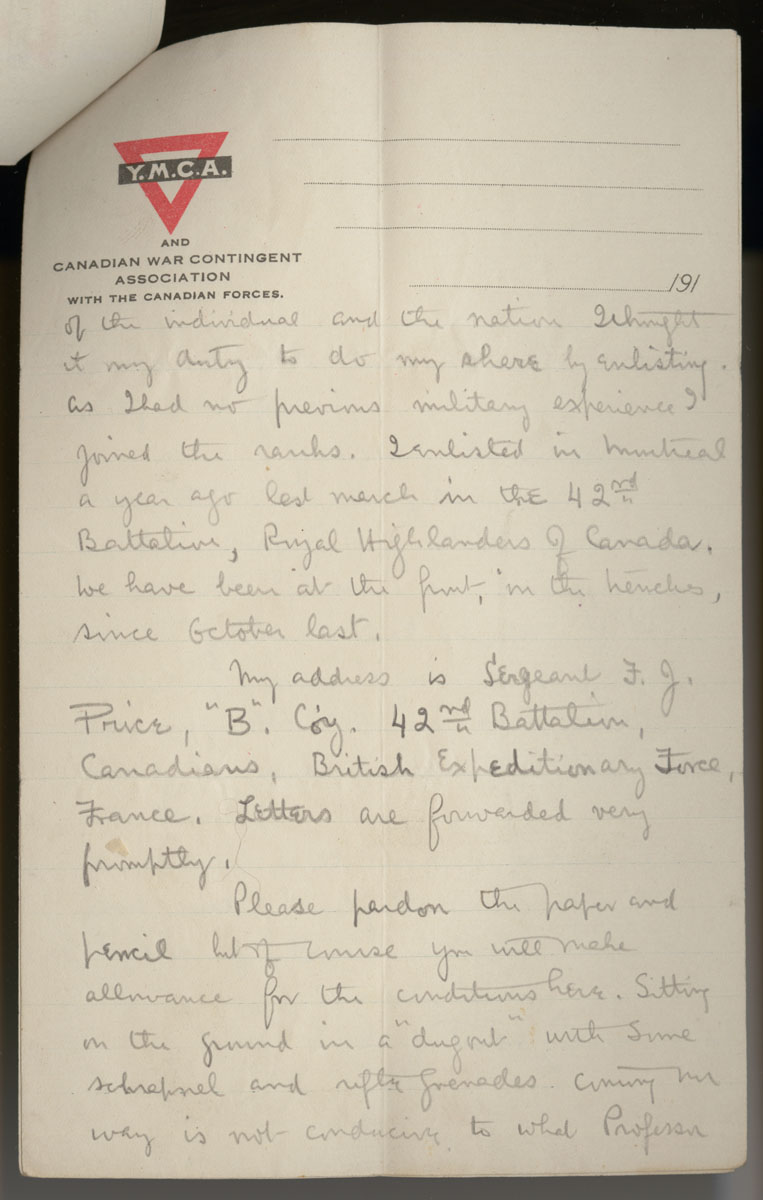 Y.M.C.A.
AND
CANADIAN WAR CONTINGENT
ASSOCIATION
WITH THE CANADIAN FORCES.
191
of the individual and the nation I thought
it my duty to do my share by enlisting.
As I had no previous military experience I
joined the ranks. I enlisted in Montreal
a year ago last march in the 42nd
Battalion, Royal Highlanders of Canada.
We have been at the front, in the trenches,
since October last.
My address is Sergeant F. J.
Price, "B". Coy. 42nd Battalion,
Canadians, British Expeditionary Force,
France. Letters are forwarded very
promptly.
Please pardon the paper and
pencil but of course you will make
allowance for the conditions here. Sitting
on the ground in a "dugout" with some
schrapnel and rifle grenades coming our
way is not conducive to what Professor